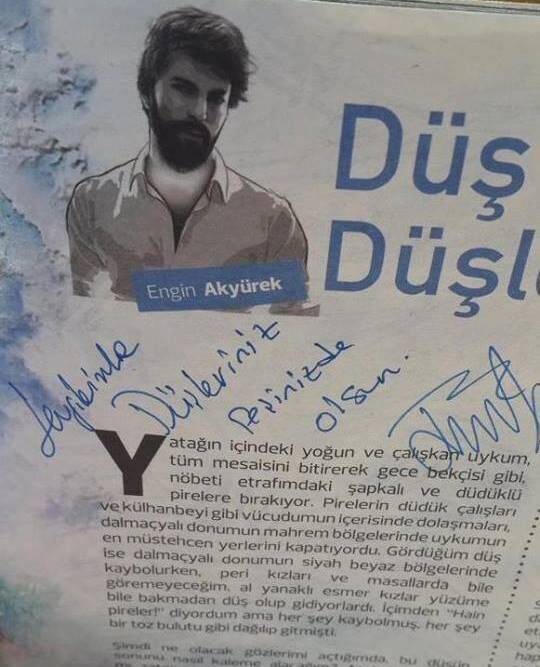 Düş
Düşl
Engin Akyürek
Düşleriniz
Peşinizde
olsun.
Yatağın içindeki yoğun ve çalışkan uykum,
tüm mesaisini bitirerek gece bekçisi gibi,
nöbeti etrafımdaki şapkalı ve düdüklü
pirelere bırakıyor. Pirelerin düdük çalışları
ve külhanbeyi gibi vücudumun içerisinde dolaşmaları,
dalmaçyalı donumun mahrem bölgelerinde uykumun
en müstehcen yerlerini kapatıyordu. Gördüğüm düş
ise dalmaçyalı donumun siyah beyaz bölgelerinde
kaybolurken, peri kızları ve masallarda bile
göremeyeceğim, al yanaklı esmer kızlar yüzüme
bile bakmadan düş olup gidiyorlardı. İçimden "Hain
pireler!" diyordum ama her şey kaybolmuş, her şey
bir toz bulutu gibi dağılıp gitmişti.
Şimdi ne olacak gözlerimi açtığımda, bu düşün
sonunu nasıl kaleme